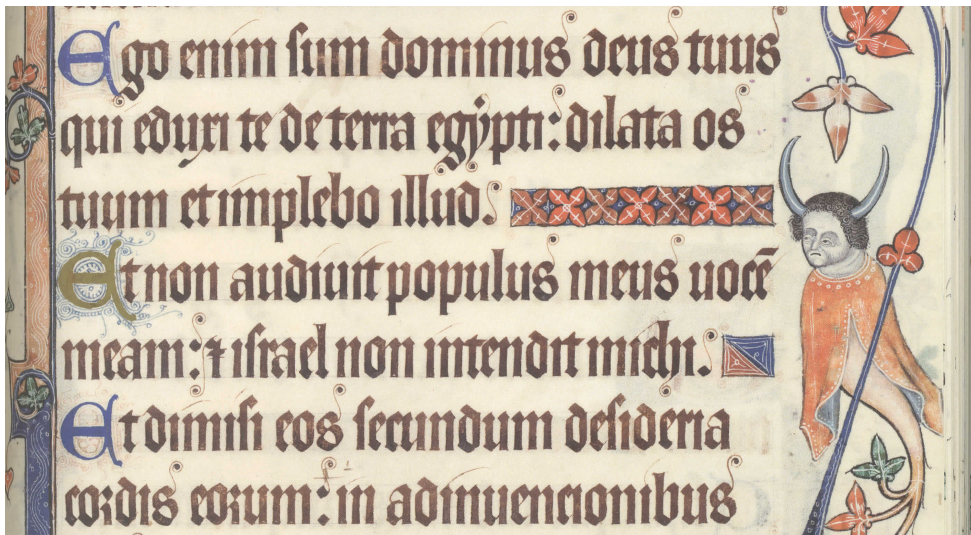 Ego enim sum dominus deus tuus
qui eduxi te de terra egẏpti: dilata os
tuum et implebo illud.
Et non audiuit populus meus uocē
meam: ⁊ israel non intendit michi.
Et dimisi eos secundum desideria
cordis eorum: in adinuencionibus